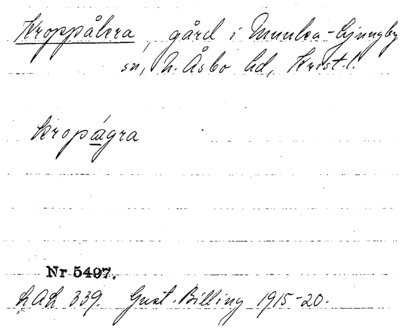 Kroppåkra, gård i Munka-Ljungby
sn, N. Åsbo hd, Krist. l.
kropágra
Nr 5497.
LAL 339. Gust. Billing 1915-20.